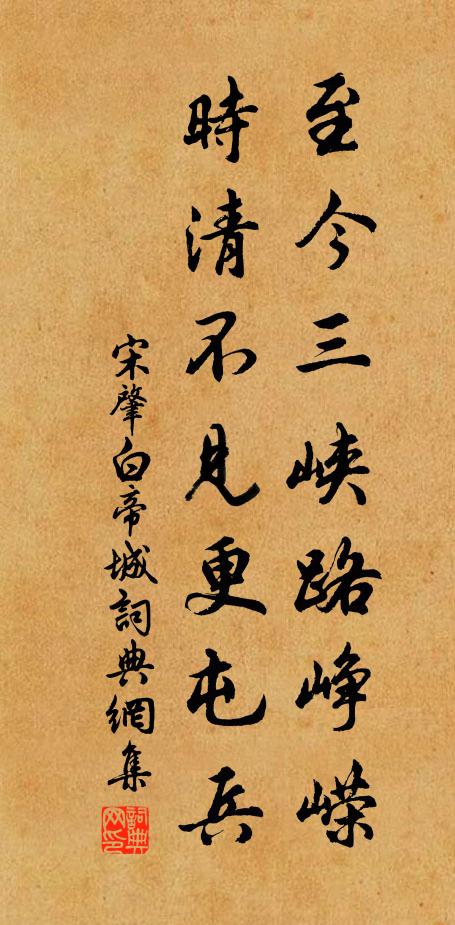 至今三峽路崢嶸
時清不見更屯兵
宋肇白帝城詞典網集
詞典网印